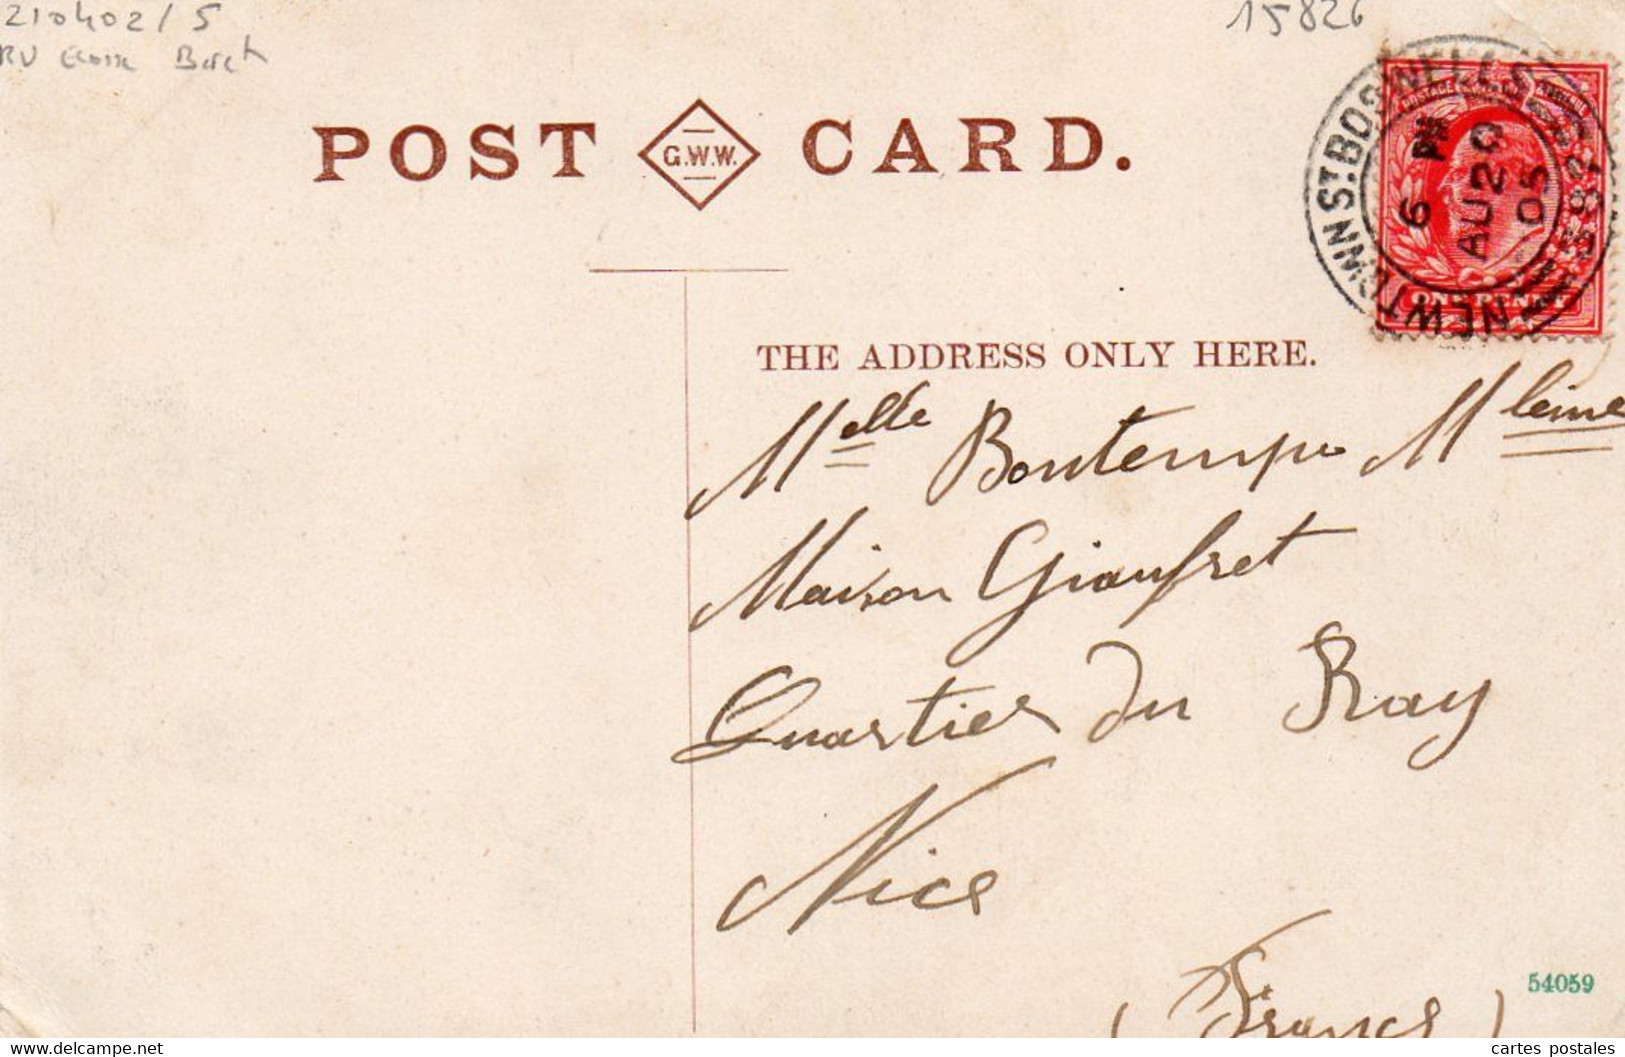 210402/5
15826
RV Ecosse
POST G.W.W. CARD.
NEWTOWN ST. BOSWELLS
6 PM
AU 20
05
587
POSTAGE
ONE PENNY
THE ADDRESS ONLY HERE.
Melle Bontemps Mleine
Maison Giaufret
Quartier du Ray
Nice
(France)
54059
www.delcampe.net
cartes postales